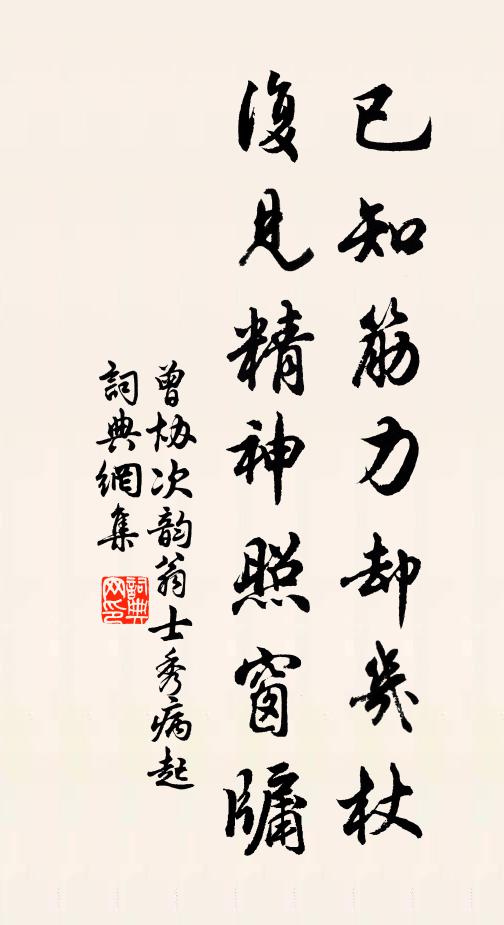 已知筋力却幾杖
復見精神照窗牖
曾协次韵翁士秀病起
詞典網集
詞典
网印